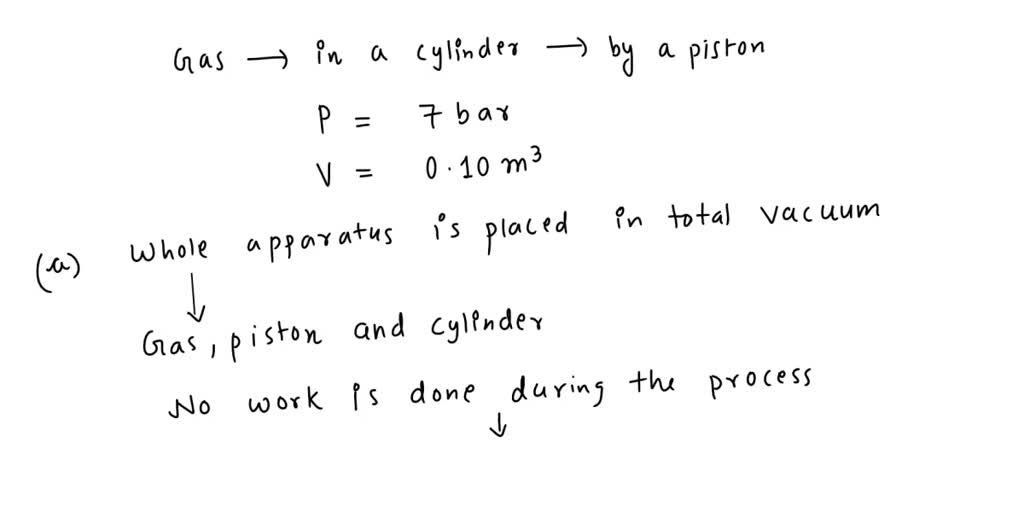 Gas → in a cylinder → by a piston
P = 7 bar
V = 0.10 m³
(a) Whole apparatus is placed in total vacuum
↓
Gas, piston and cylinder
No work is done during the process
↓